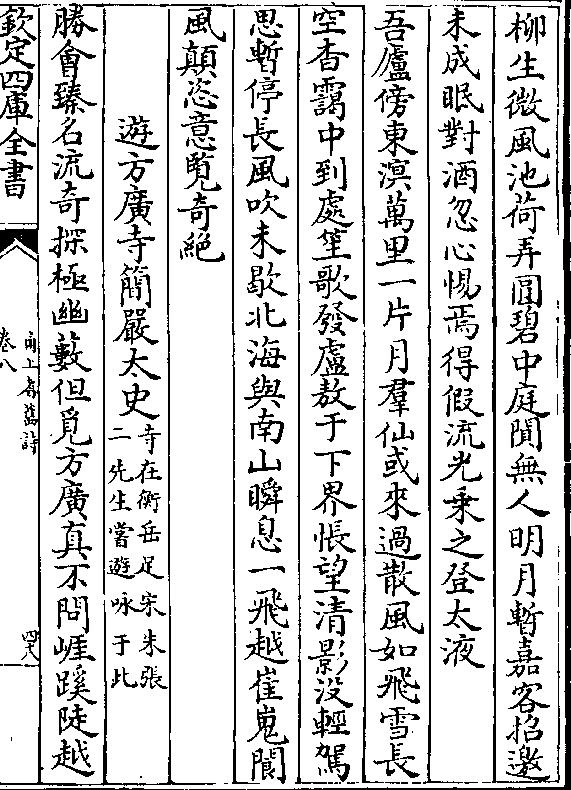 柳生微風池荷弄圓碧中庭閴無人明月暫嘉客招邀
未成眠對酒忽心惕焉得假流光乗之登太液
吾廬傍東溟萬里一片月羣仙或來過散風如飛雪長
空杳靄中到處笙歌發盧敖于下界悵望清影没輕駕
思暫停長風吹未歇北海與南山瞬息一飛越崔嵬閬
風顛恣意覽奇絶
遊方廣寺簡嚴太史
寺在衡岳足宋朱張
二先生嘗遊咏于此
勝會臻名流奇探極幽藪但覓方廣真不問崕蹊陡越
欽定四庫全書
甬上耆舊詩
卷八
四八